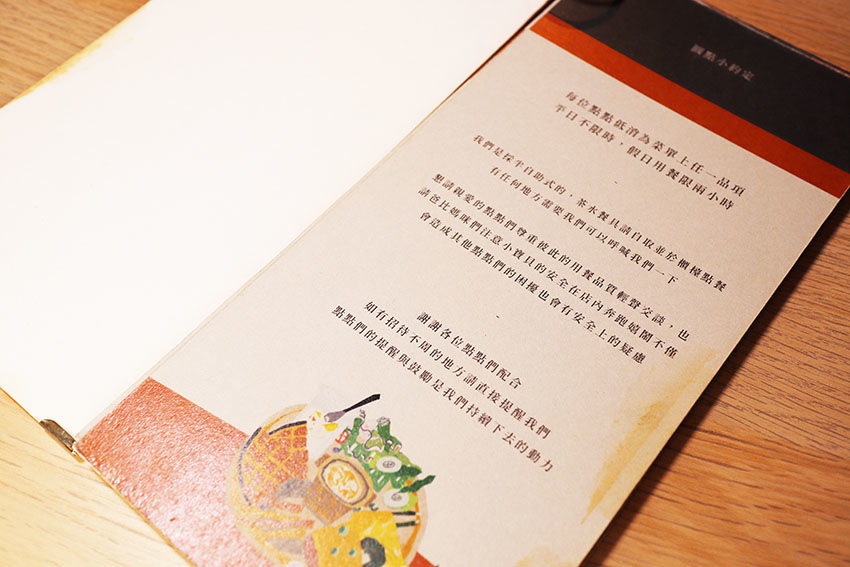 餵點小約定
每位點點低消為菜單上任一品項
平日不限時，假日用餐限兩小時
我們是採半自助式的，茶水餐具請自取並於櫃檯點餐
有任何地方需要我們可以呼喊我們一下
懇請親愛的點點們尊重彼此的用餐品質輕聲交談，也
請爸比媽咪們注意小寶貝的安全在店內奔跑嬉鬧不僅
會造成其他點點們的困擾也會有安全上的疑慮
謝謝各位點點們配合
如有招待不周的地方請直接提醒我們
點點們的提醒與鼓勵是我們持續下去的動力